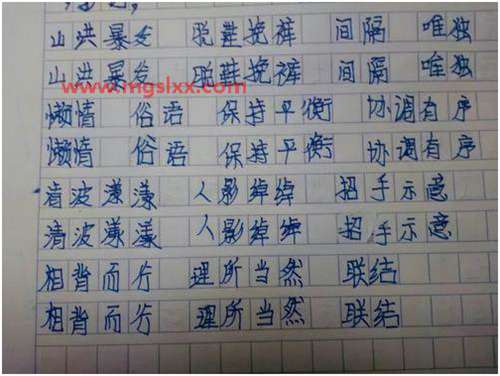 山洪暴发 脱鞋挽裤 间隔 唯独
山洪暴发 脱鞋挽裤 间隔 唯独
www.mgslxx.com
懒情 俗语 保持平衡 协调有序
懒情 俗语 保持平衡 协调有序
清波漾漾 人影绰绰 招手示意
清波漾漾 人影绰绰 招手示意
相背而行 理所当然 联结
相背而行 理所当然 联结